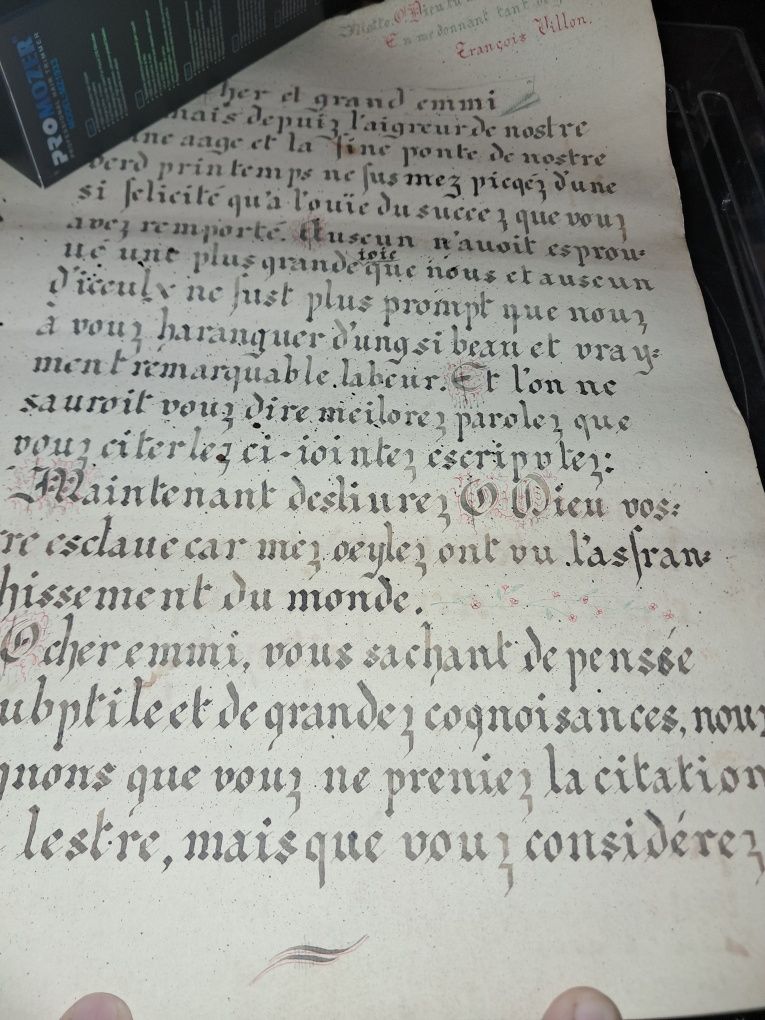 PROMOZER
Motto. O Dieu tu
En me donnant tant de
François Villon.
cher et grand emmi
mais depuiz l'aigreur de nostre
ne aage et la fine ponte de nostre
verd printemps ne fus mez picqéz d'une
si felicité qu'a l'ouïe du succez que vouz
avez remporté. Auscun n'auoit esprou-
ué une plus grande ioie que nous et auscun
d'iceulx ne fust plus prompt que nouz
à vouz haranguer d'ung si beau et vray-
ment remarquable labeur. Et l'on ne
sauroit vouz dire meilorez parolez que
vouz citer lez ci-iointez escripvtez:
Maintenant desliurez O Dieu vos-
re esclaue car mez oeylez ont vu l'asfran-
hissement du monde.
O cher emmi, vous sachant de pensée
ubptile et de grandez cognoisances, nouz
gnons que vouz ne preniez la citation
lestre, mais que vouz considérez